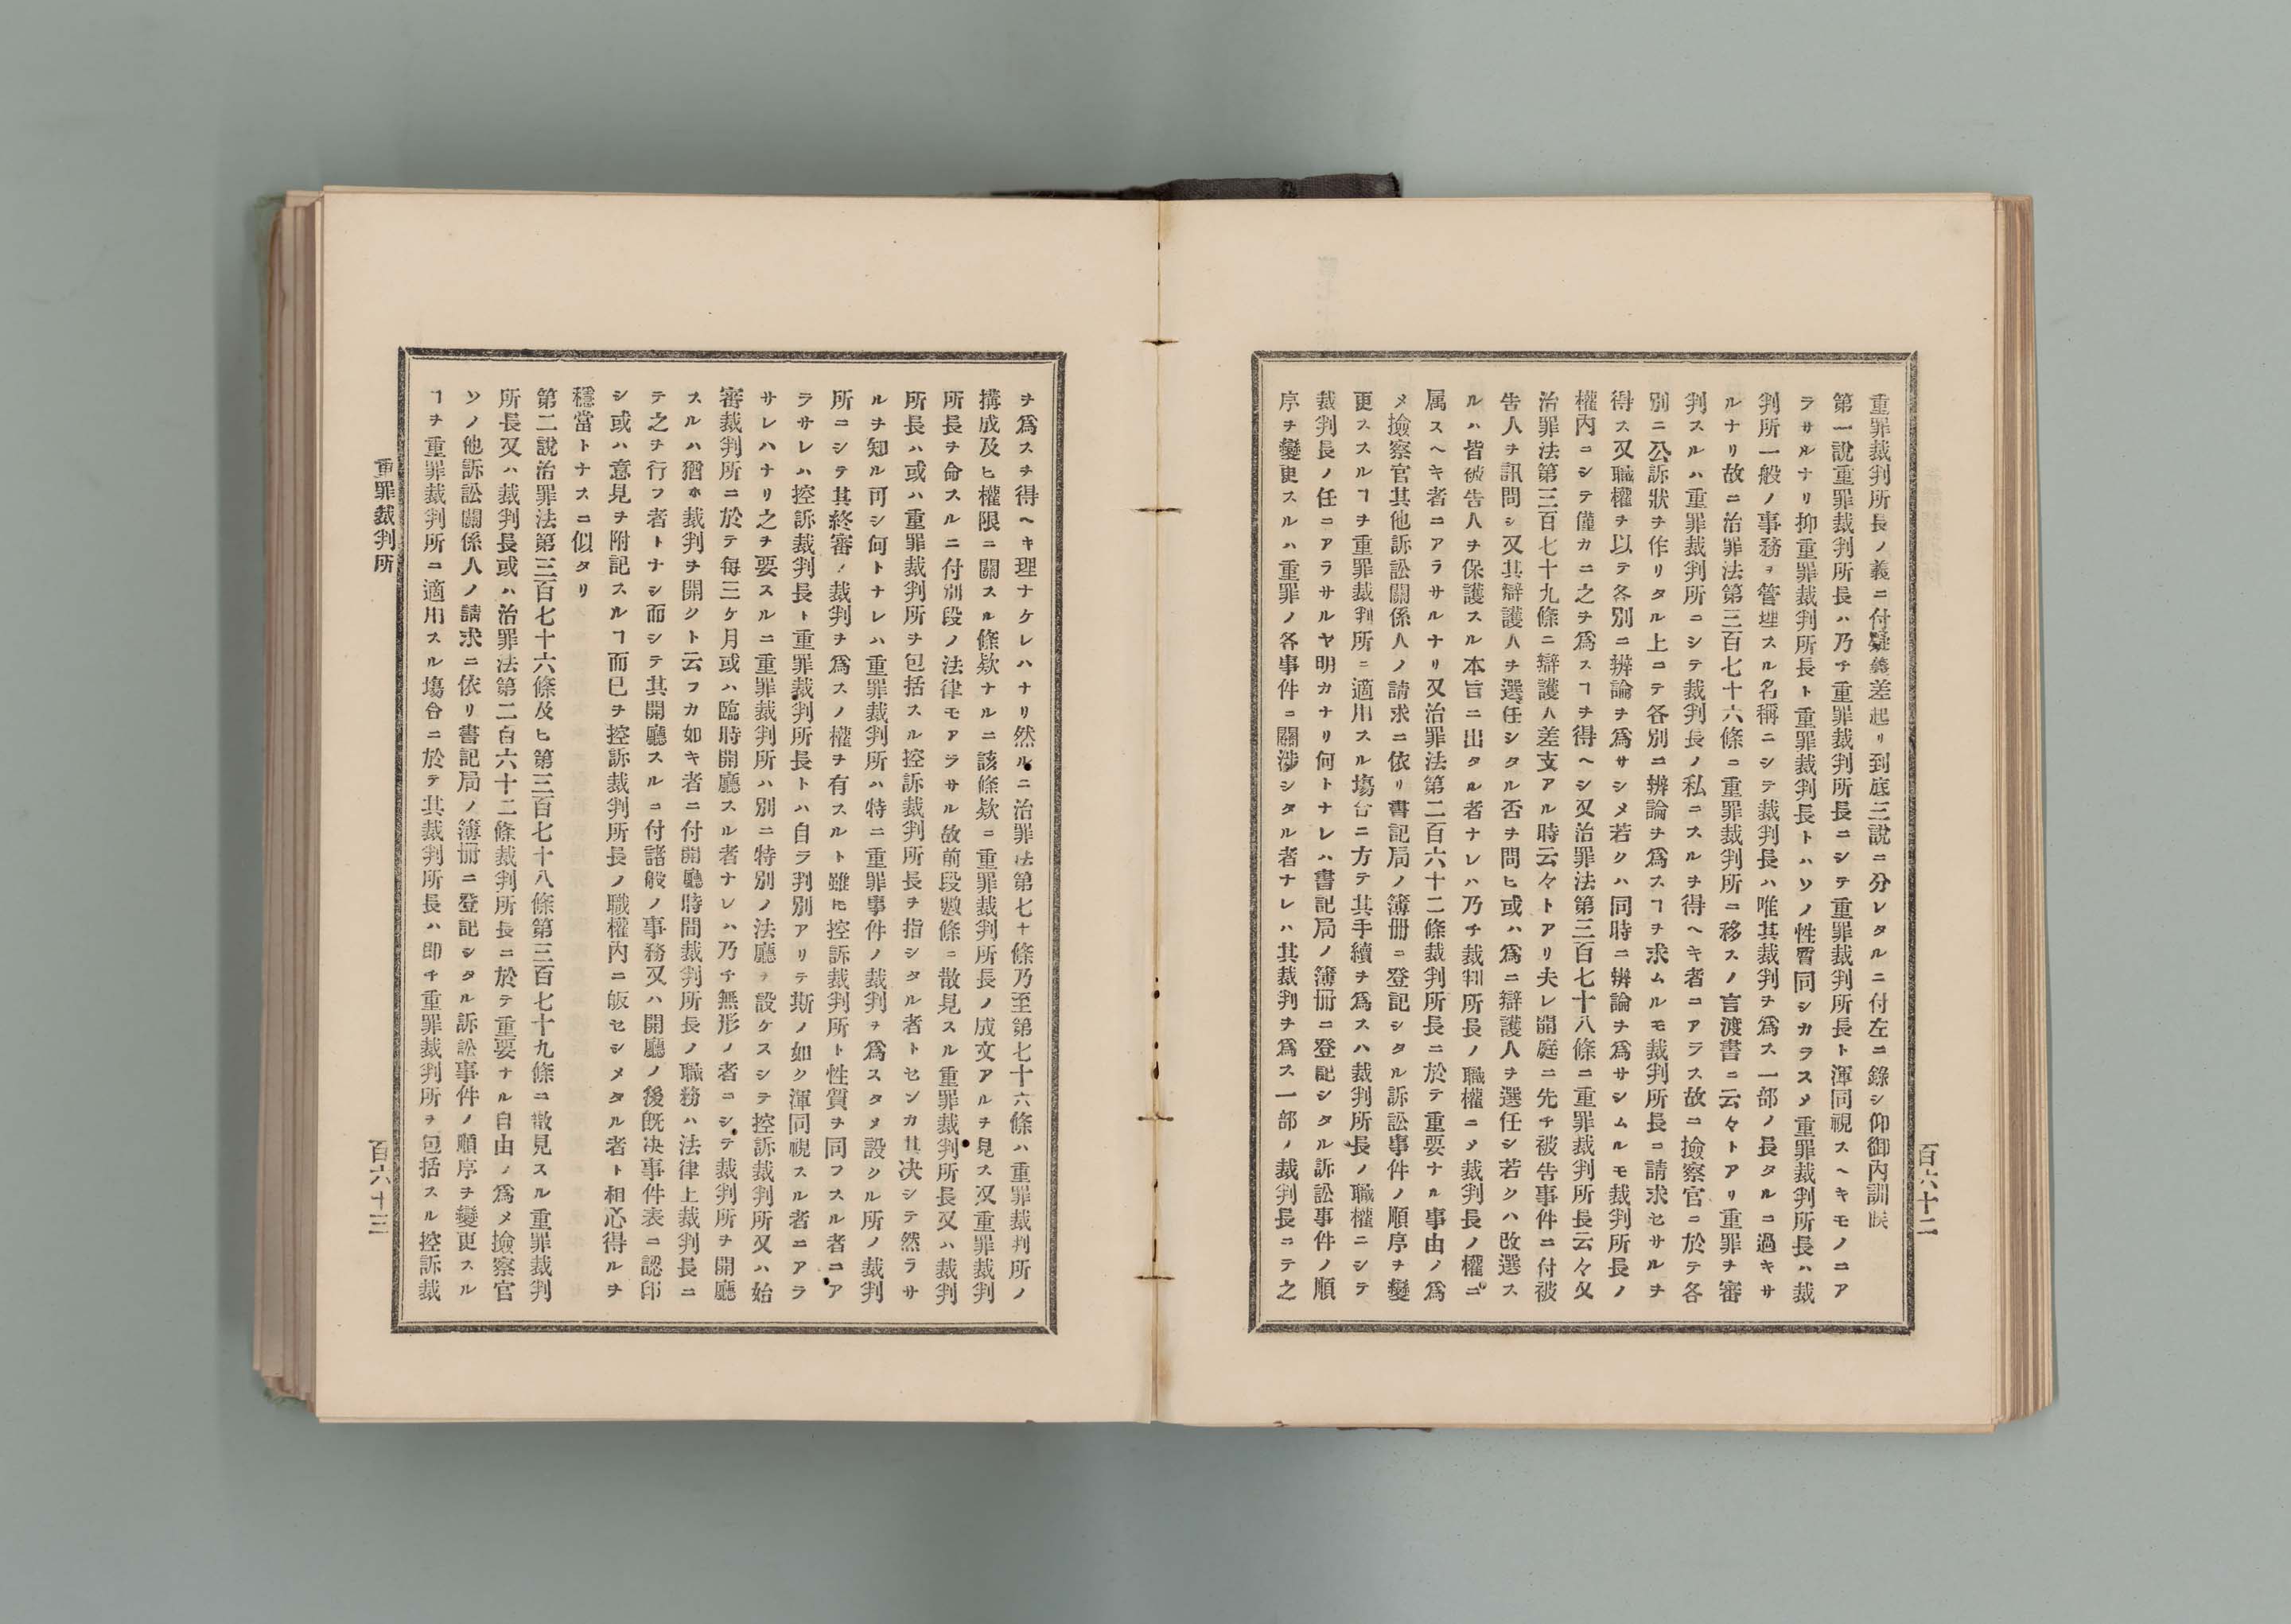 重罪裁判所長ノ義ニ付疑義差起リ到底三說ニ分レタルニ付左ニ錄シ仰御內訓候
第一說重罪裁判所長ハ乃チ重罪裁判所長ニシテ重罪裁判所長ト渾同視スヘキモノニア
ラサルナリ抑重罪裁判所長ト重罪裁判長トハソノ性質同シカラスメ重罪裁判所長ハ裁
判所一般ノ事務ヲ管理スル名稱ニシテ裁判長ハ唯其裁判ヲ爲ス一部ノ長タルニ過キサ
ルナリ故ニ治罪法第三百七十六條ニ重罪裁判所ニ移スノ言渡書ニ云々トアリ重罪ヲ審
判スルハ重罪裁判所ニシテ裁判長ノ私ニスルヲ得ヘキ者ニアラス故ニ撿察官ニ於テ各
別ニ公訴狀ヲ作リタル上ニテ各別ニ辨論ヲ爲スヿヲ求ムルモ裁判所長ニ請求セサルヲ
得ス又職權ヲ以テ各別ニ辨論ヲ爲サシメ若クハ同時ニ辨論ヲ爲サシムルモ裁判所長ノ
權內ニシテ僅カニ之ヲ爲スヿヲ得ヘシ又治罪法第三百七十八條ニ重罪裁判所長云々又
治罪法第三百七十九條ニ辯護人差支アル時云々トアリ夫レ開庭ニ先チ被告事件ニ付被
告人ヲ訊問シ又其辯護人ヲ選任シタル否ヲ問ヒ或ハ爲ニ辯護人ヲ選任シ若クハ改選ス
ルハ皆被告人ヲ保護スル本旨ニ出タル者ナレハ乃チ裁判所長ノ職權ニメ裁判長ノ權ニ
属スヘキ者ニアラサルナリ又治罪法第二百六十二條裁判所長ニ於テ重要ナル事由ノ爲
メ撿察官其他訴訟關係人ノ請求ニ依リ書記局ノ簿册ニ登記シタル訴訟事件ノ順序ヲ變
更ススルヿヲ重罪裁判所ニ適用スル塲合ニ方テ其手續ヲ爲スハ裁判所長ノ職權ニシテ
裁判長ノ任ニアラサルヤ明カナリ何トナレハ書記局ノ簿册ニ登記シタル訴訟事件ノ順
序ヲ變更スルハ重罪ノ各事件ニ關涉シタル者ナレハ其裁判ヲ爲ス一部ノ裁判長ニテ之
百六十二
ヲ爲スヲ得ヘキ理ナケレハナリ然ルニ治罪法第七十條乃至第七十六條ハ重罪裁判所ノ
搆成及ヒ權限ニ關スル條欵ナルニ該條欵ニ重罪裁判所長ノ成文アルヲ見ス又重罪裁判
所長ヲ命スルニ付別段ノ法律モアラサル故前段數條ニ散見スル重罪裁判所長又ハ裁判
所長ハ或ハ重罪裁判所ヲ包括スル控訴裁判所長ヲ指シタル者トセンカ其决シテ然ラサ
ルヲ知ル可シ何トナレハ重罪裁判所ハ特ニ重罪事件ノ裁判ヲ爲スタメ設クル所ノ裁判
所ニシテ其終審ノ裁判ヲ爲スノ權ヲ有スルト雖𪜈控訴裁判所ト性質ヲ同フスル者ニア
ラサレハ控訴裁判長ト重罪裁判所長トハ自ラ判別アリテ斯ノ如ク渾同視スル者ニアラ
サレハナリ之ヲ要スルニ重罪裁判所ハ別ニ特別ノ法廳ヲ設ケスシテ控訴裁判所又ハ始
審裁判所ニ於テ每三ケ月或ハ臨時開廳スル者ナレハ乃チ無形ノ者ニシテ裁判所ヲ開廳
スルハ猶ホ裁判ヲ開クト云フカ如キ者ニ付開廳時間裁判所長ノ職務ハ法律上裁判長ニ
テ之ヲ行フ者トナシ而シテ其開廳スルニ付諸般ノ事務又ハ開廳ノ後旣决事件表ニ認印
シ或ハ意見ヲ附記スルヿ而已ヲ控訴裁判所長ノ職權內ニ皈セシメタル者ト相心得ルヲ
穩當トナスニ似タリ
第二說治罪法第三百七十六條及ヒ第三百七十八條第三百七十九條ニ散見スル重罪裁判
所長又ハ裁判長或ハ治罪法第二百六十二條裁判所長ニ於テ重要ナル自由ノ爲メ撿察官
ソノ他訴訟關係人ノ請求ニ依リ書記局ノ簿册ニ登記シタル訴訟事件ノ順序ヲ變更スル
ヿヲ重罪裁判所ニ適用スル塲合ニ於テ其裁判所長ハ卽チ重罪裁判所ヲ包括スル控訴裁
重罪裁判所
百六十三